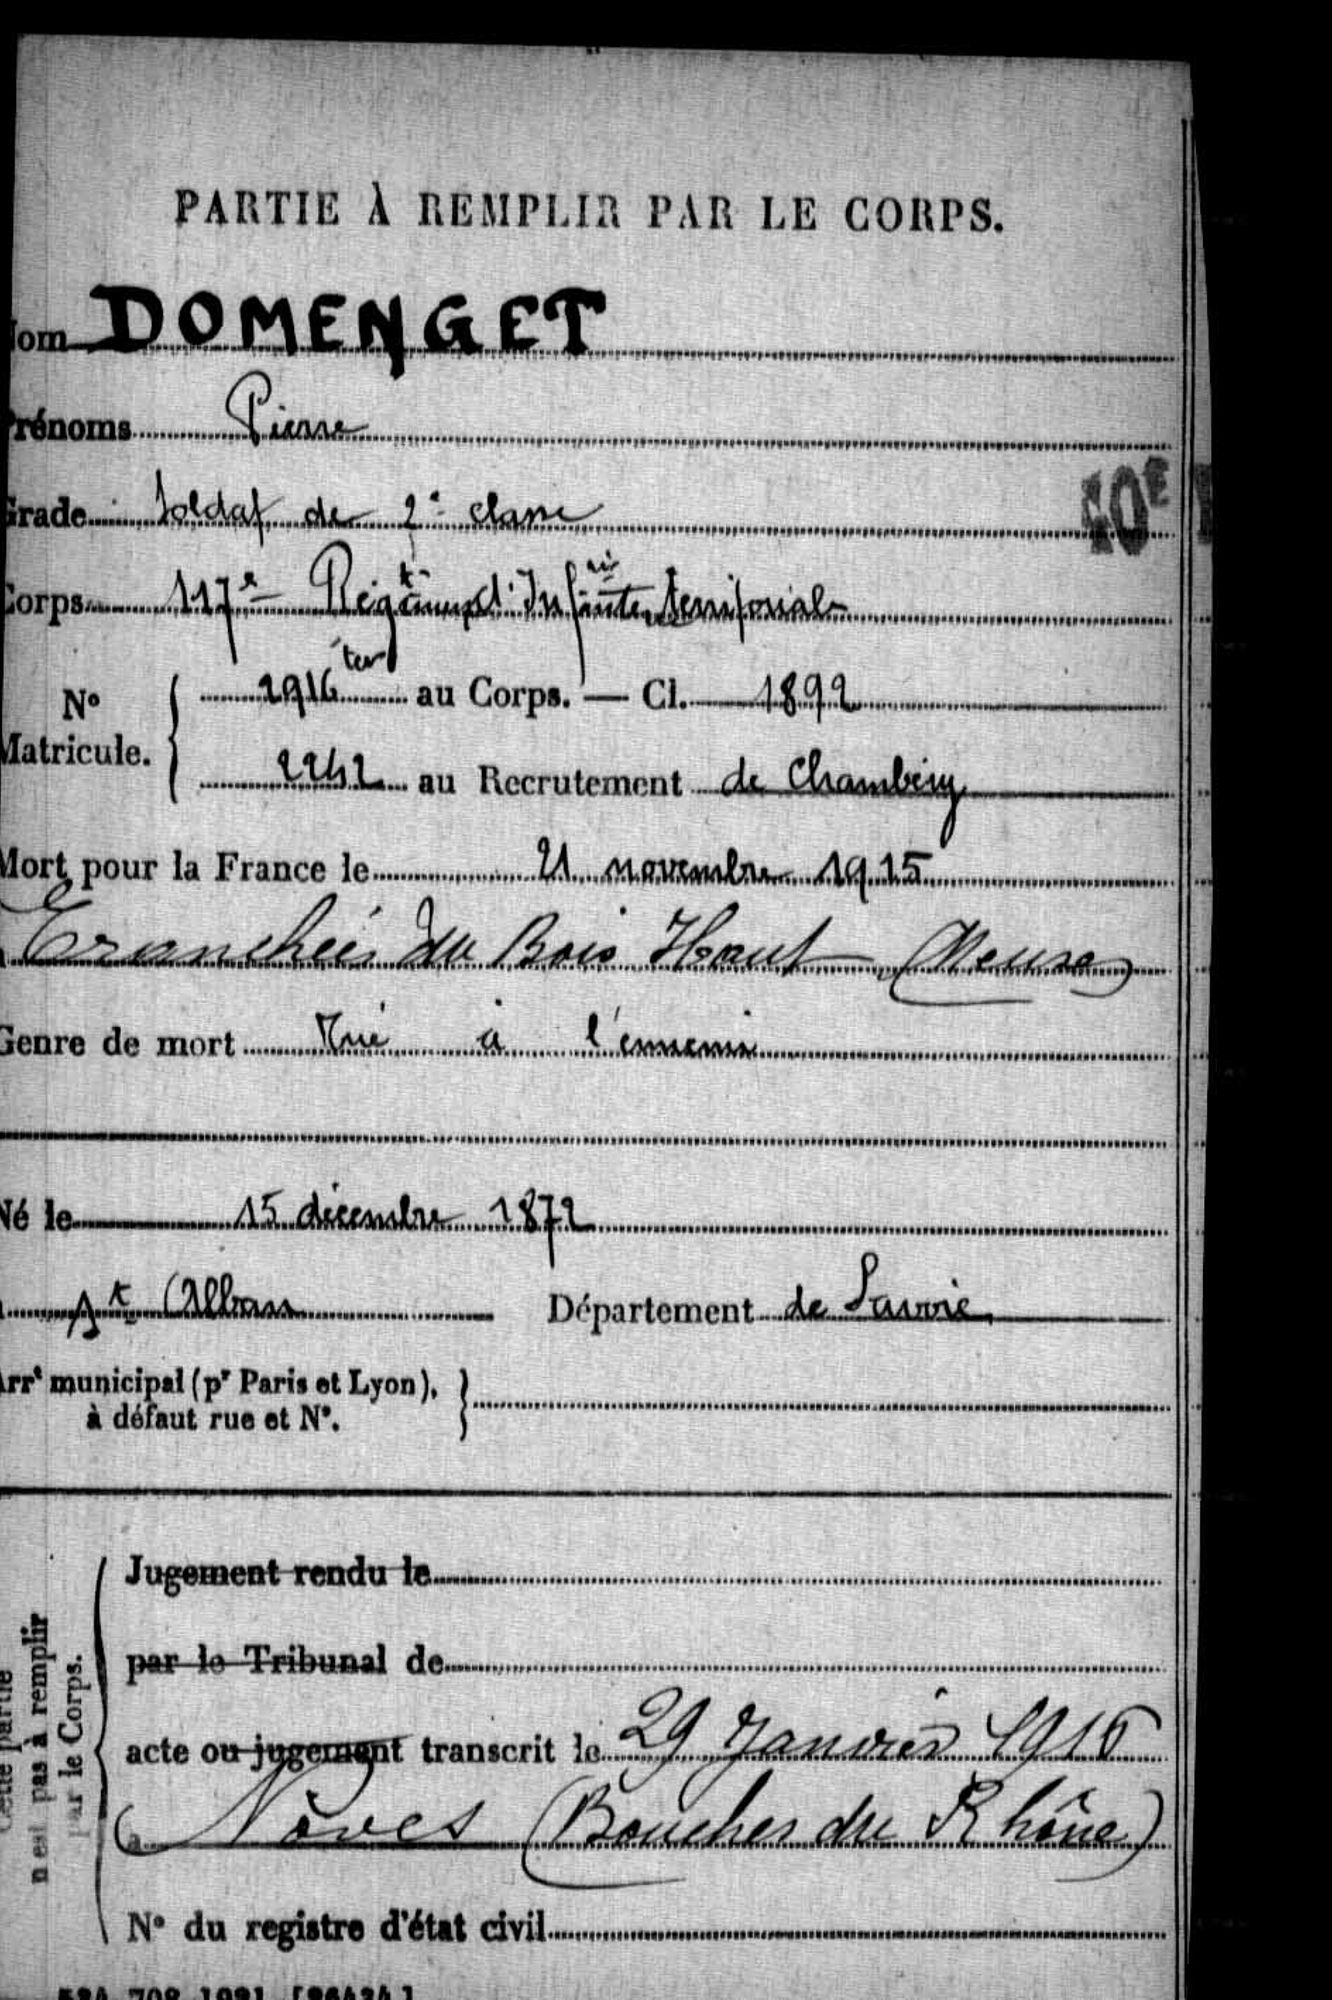 PARTIE À REMPLIR PAR LE CORPS.
Nom DOMENGET
Prénoms Pierre
Grade Soldat de 2e classe
40E
Corps 117e Régiment d'Infanterie territoriale
No Matricule. 2916 ter au Corps. — Cl. 1892
2242 au Recrutement de Chambéry
Mort pour la France le 21 novembre 1915
à Tranchées du Bois Haut (Meuse)
Genre de mort Tué à l'ennemi
Né le 15 décembre 1872
à St Alban Département de Savoie
Arrt municipal (pr Paris et Lyon), à défaut rue et No.
Cette partie n'est pas à remplir par le Corps.
Jugement rendu le
par le Tribunal de
acte ou jugement transcrit le 29 Janvier 1916
à Nôves (Bouches du Rhône)
No du registre d'état civil
534 708 1921 [26434]